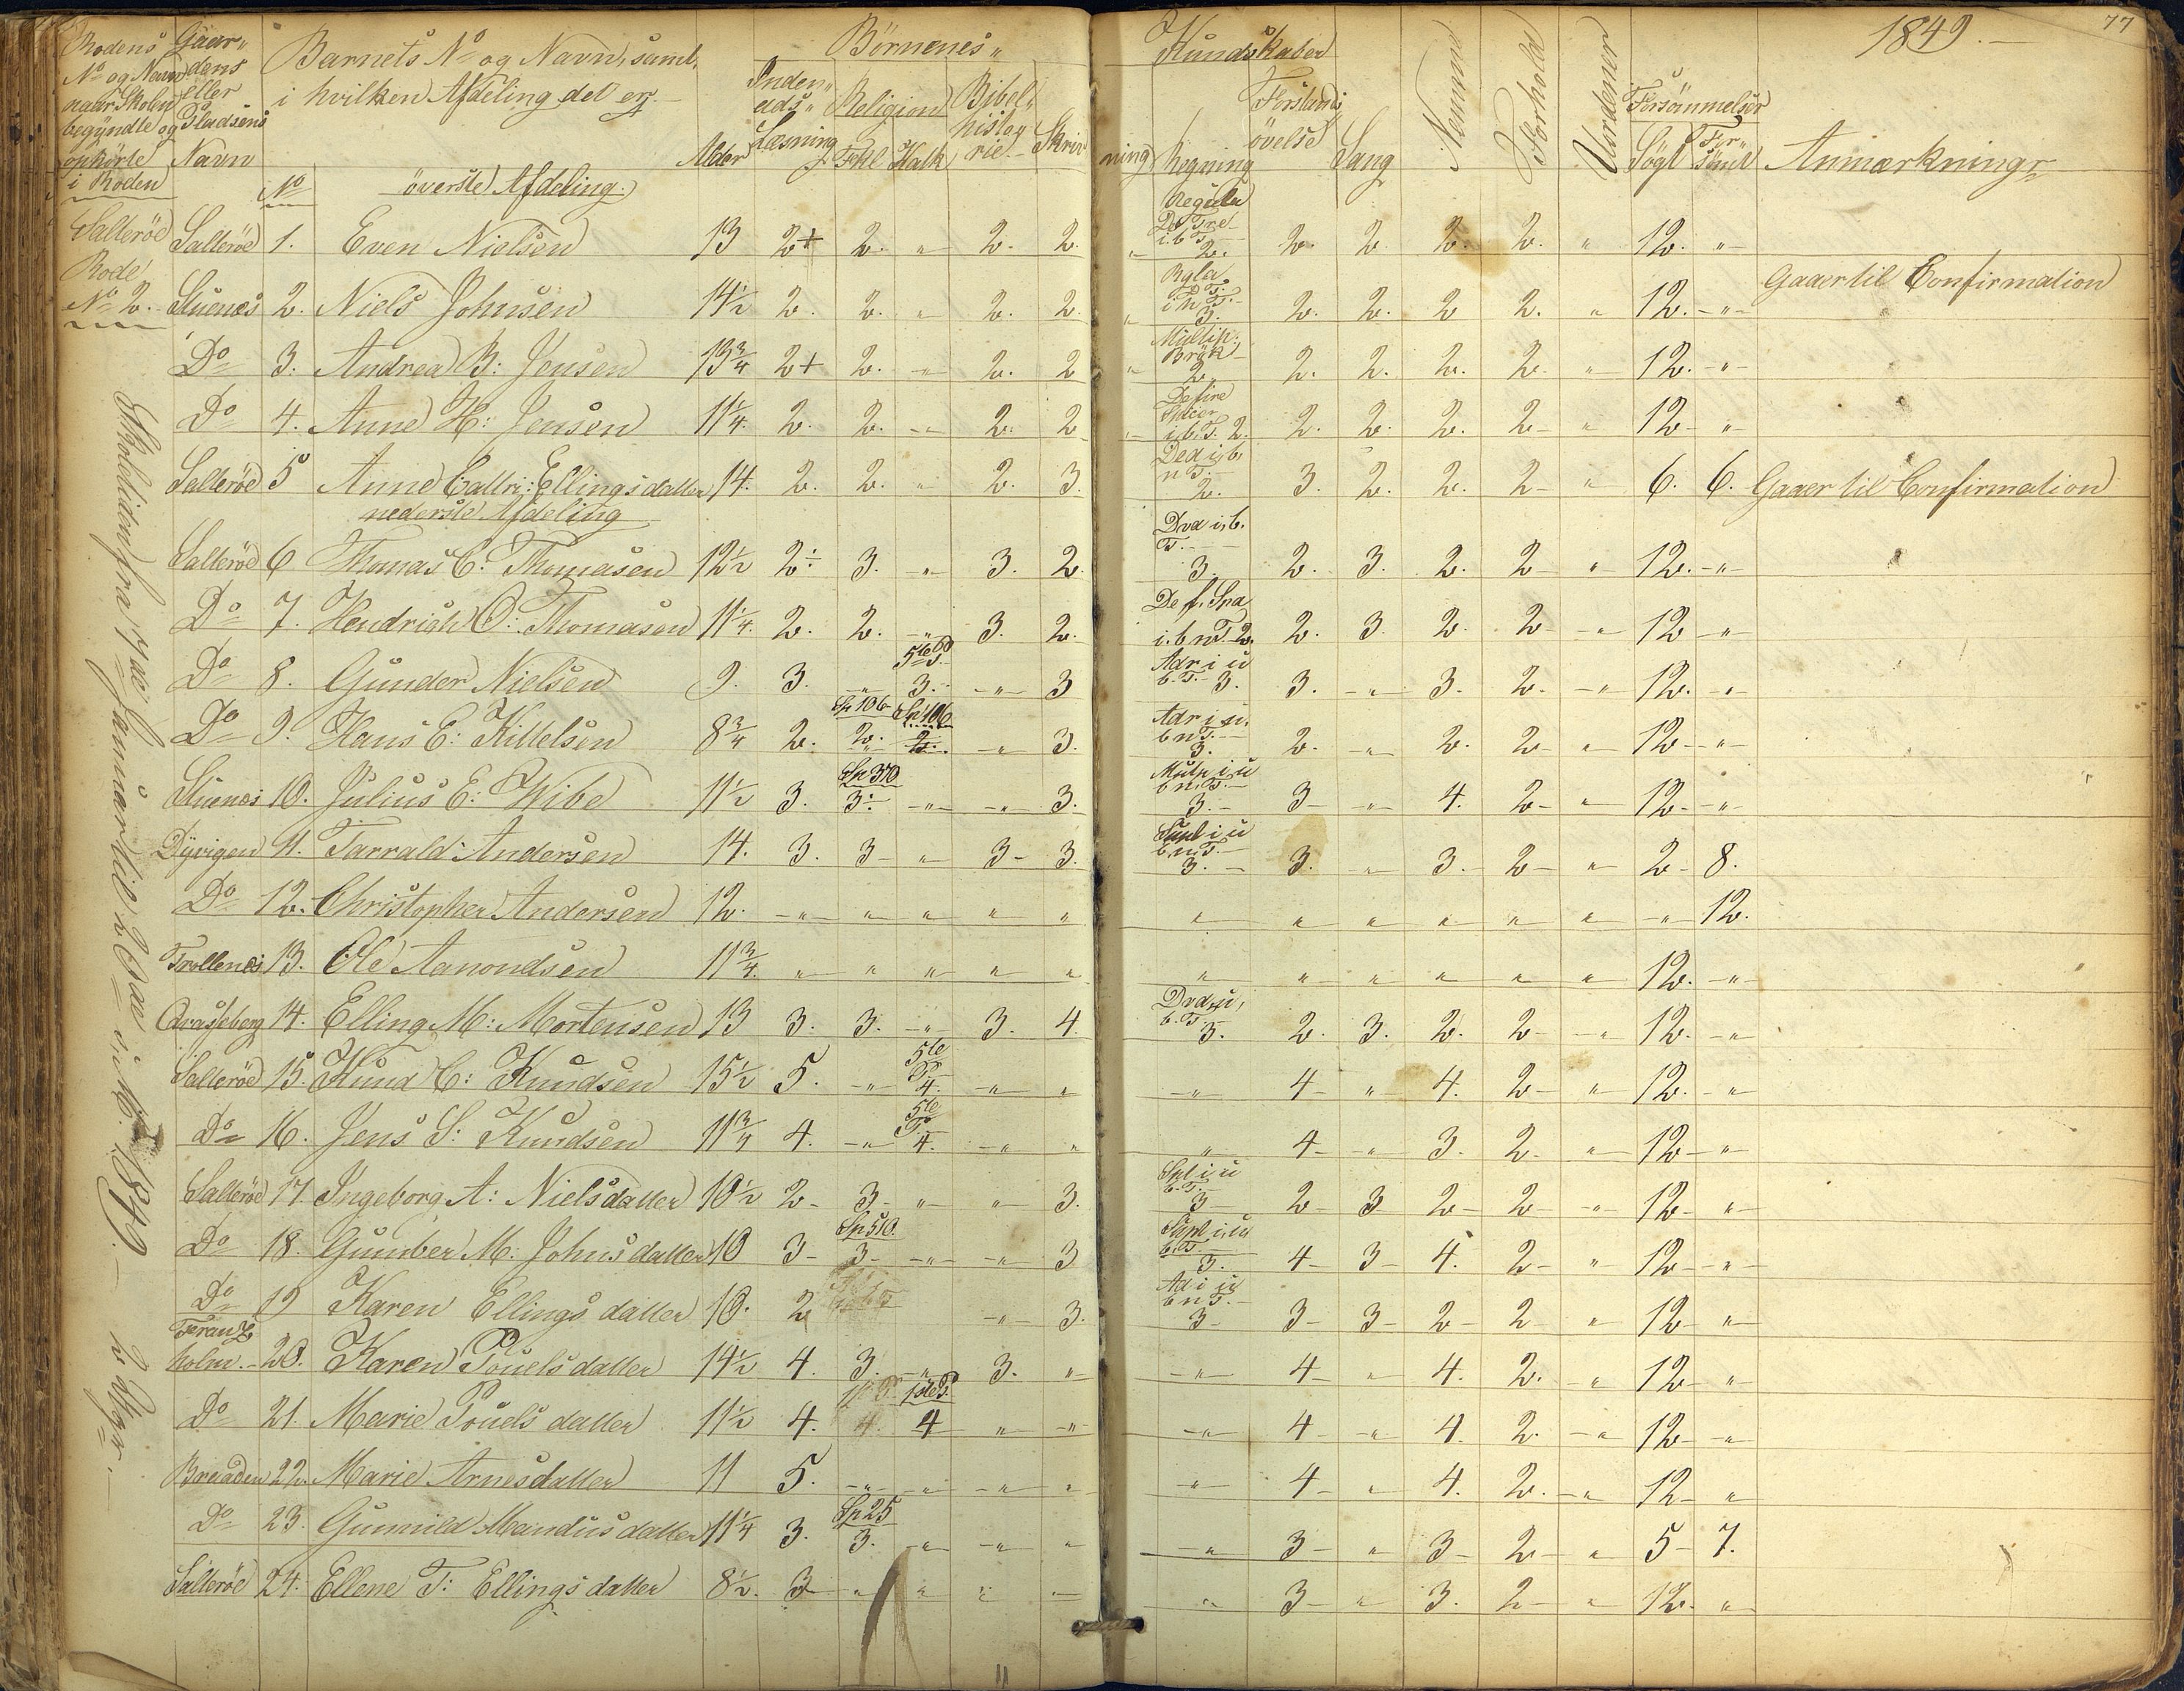 77
1849.
Rodens No og Navn naar Skolen begÿndte og ophörte i Roden
Gaardens eller Pladsens Navn
Barnets No og Navn, samt, i hvilken Afdeling det er.
Alder
Börnenes Kundskaber
Indenads Læsning
Religion
Fkl
Katk
Bibelhistorie
Skrivning
Regning
Forstandsövelse
Sang
Nemme
Forhold
Uordener
Forsömmelser
Sögt
Forsömt
Anmærkninger
No överste Afdeling.
Salleröd Rode No 2.
Skoletiden fra 7de Januar til
1849. 2 Uger.
Salleröd 1. Even Nielsen 13 2+ 2. " 2. 2. " Regula De Tre i.b T. 2. 2. 2. 2. 2. " 12. "
Stuenes 2. Niels Johnsen 14½ 2. 2. " 2. 2. " Rgla D T. i n T. 3. 2. 2. 2 2. " 12. " Gaaer til Confirmation
Do 3. Andrea B: Jensen 13¾ 2+ 2. " 2. 2 " Multip. Brök 2. 2. 2. 2. 2. " 12. "
Do 4. Anne H: Jensen 11¼. 2. 2. " 2. 2 " De fire Specier i.b.T. 2. 2. 2. 2. 2 " 12 "
Salleröd 5 Anne Cathr: Ellingsdatter 14. 2. 2. " 2. 3. n T. 2. 3. 2. 2. 2 " 6. 6. Gaaer til Confirmation
nederste Afdeling
Salleröd 6 Thomas C. Thomasen 12½ 2÷ 3. " 3. 2. Dvd i.b. T. 3. 2. 3. 2. 2 " 12. "
Do 7. Hendrich O: Thomasen 11¼. 2. 2. " 3. 2. De f. Spa i.b n T. 2. 2. 3. 2. 2 " 12 "
Do 8. Gunder Nielsen 9. 3. " 5te P. 3. " 3 Adr i u b.T. 3. 3. " 3. 2. " 12. "
Do 9. Hans E: Kittelsen 8¾ 2. Sp 106 2. Sp 106 2. " 3. Adr i u. b n T. 3. 2. " 2. 2 " 12 "
Stuenes 10. Julius E: Wibe 11½ 3. Sp 370 3. " " 3. Mulp i u b n.T. 3. 3 " 4. 2 " 12 "
Dÿvigen 11. Tarrald Andersen 14. 3. 3 " 3 3. Subt i u b n.T. 3. 3. " 3. 2 " 2 8.
Do 12. Christopher Andersen 12. " " " " " " " " " " " " 12.
Trollenes 13. Ole Aanondsen 11¾. " " " " " " " " " " " 12. "
14. Elling M: Mortensen 13 3. 3. " 3. 4. Dvd i u, b.T. 3. 2. 3. 2. 2 " 12. "
Salleröd 15. Knud C: Knudsen 15½ 5. " 5te P. 4. " " " 4 " 4. 2 " 12. "
Do 16. Jens S: Knudsen 11¾ 4. " 5te P. 4. " " " 4 " 3. 2 " 12 "
Salleröd 17. Ingeborg A: Nielsdatter 10½ 2 3 " " 3. Spl i u b.T. 3 2 3 2 2 " 12 "
Do 18. Gunber M: Johnsdatter 10 3 Sp 510. 3 " " 3 Subt i u b.T. 3. 4 3 4. 2 " 12 "
Do 19 Karen Ellingsdatter 10. 2 " 3. Ad i u b n T. 3 3 3 2 2 " 12 "
Tranholm. 20. Karen Pouelsdatter 14½ 4. 3. " 3. " " 4 " 4. 2. " 12 "
Do 21. Marie Pouelsdatter 11½ 4. 4. 1ste P. 4 " " " 4 " 4. 2. " 12 "
Breaaden 22. Marie Arnesdatter 11 5. " " " " " 4 " 4. 2. " 12 "
Do 23. Gunnild Mandusdatter 11¼ 3. Sp 25 3. " " " " 3 " 3 2 " 5 7.
Salleröd 24. Ellene T: Ellingsdatter 8½. 3 " " " " " 3 " 3. 2 " 12. "